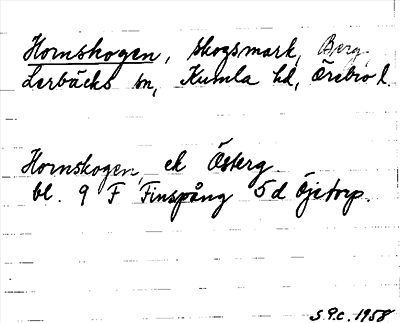 Hornskogen, skogsmark, Berg.
Lerbäcks sn, Kumla hd, Örebro l.
Hornskogen, ek Österg.
bl. 9 F Finspång 5 d Öjetorp.
S.G.c. 1958